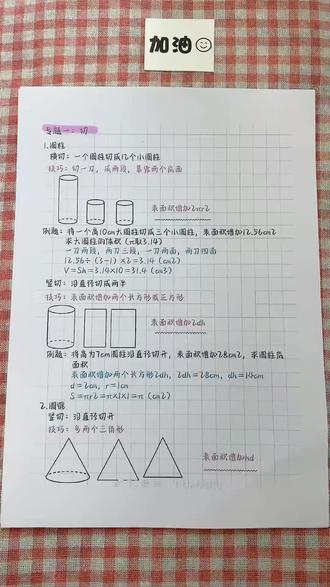 加油
专题一:切
1.圆柱
横切:一个圆柱切成几个小圆柱
技巧:切一刀,成两段,暴露两个底面
表面积增加2πr2
例题:将一个高10cm大圆柱切成三个小圆柱,表面积增加12.56cm2
求大圆柱的体积(π取3.14)
一刀两段,两刀三段,一刀两面,两刀四面
12.56÷(3-1)×2=3.14(cm2)
V=Sh=3.14×10=31.4(cm3)
竖切:沿直径切成两半
技巧:表面积增加两个长方形或正方形
表面积增加2dh
例题:将高为7cm圆柱沿直径切开,表面积增加28cm2,求圆柱底
面积
表面积增加两个长方形2dh,2dh=28cm,dh=14cm
d=2cm,r=1cm
S=πr2=π×1×1=π(cm2)
2.圆锥
竖切:沿直径切开
技巧:多两个三角形
表面积增加hd